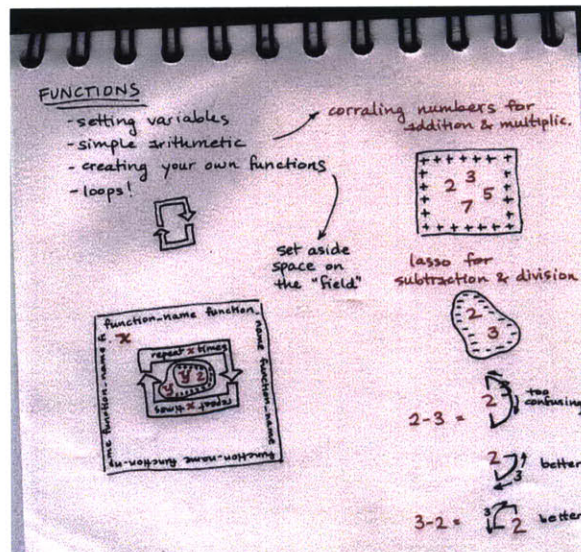 FUNCTIONS
- setting variables
- simple arithmetic
- creating your own functions
- loops!
corraling numbers for
addition & multiplic.
+ + + + + + + + +
2 3 5
7
set aside
space on
the "field"
lasso for
subtraction & division
2
3
function_name function_
name function_name
function_name function_na
me function_name f
x
repeat x times
y 2
y
repeat x times
2-3 =
2
3
too
confusing
2
3
better
3-2 =
3
2
better